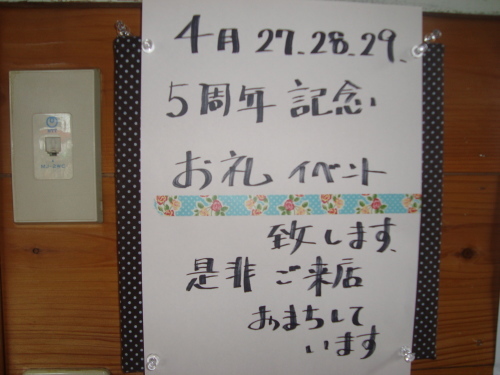 4月27.28.29.
5周年 記念
お礼 イベント
致します、
是非 ご来店
おまちして
います